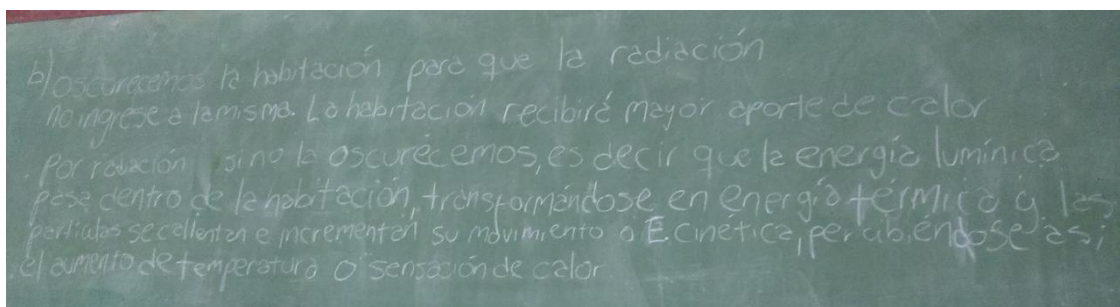 b) oscurecemos la habitación para que la radiación
no ingrese a la misma. La habitación recibirá mayor aporte de calor
por radiación, si no la oscurecemos, es decir que la energía lumínica
pasa dentro de la habitación, transformándose en energía térmica y las
partículas se calientan e incrementan su movimiento o E. cinética, percibiéndose así
el aumento de temperatura o sensación de calor